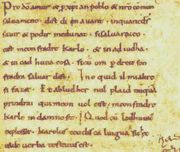 Pro dō amur & pxpian poblo & nro cōmun
saluament. dist di en auant. inquantdš
sauir & podir medunat. sisaluaraieo.
cist meon fradre karlo. & in adiudha
& in cad huna cosa. sicū om p dreit son
fradra saluar dift. Ino quid il mialtre
si faz&. Et abludher nul plaid nūquā
prindrai qui meon uol cist meon fradre
karle in damno sit. Quod cū lodhuuic
explesset. karolus teudisca lingua
eadē uerba testatus est.